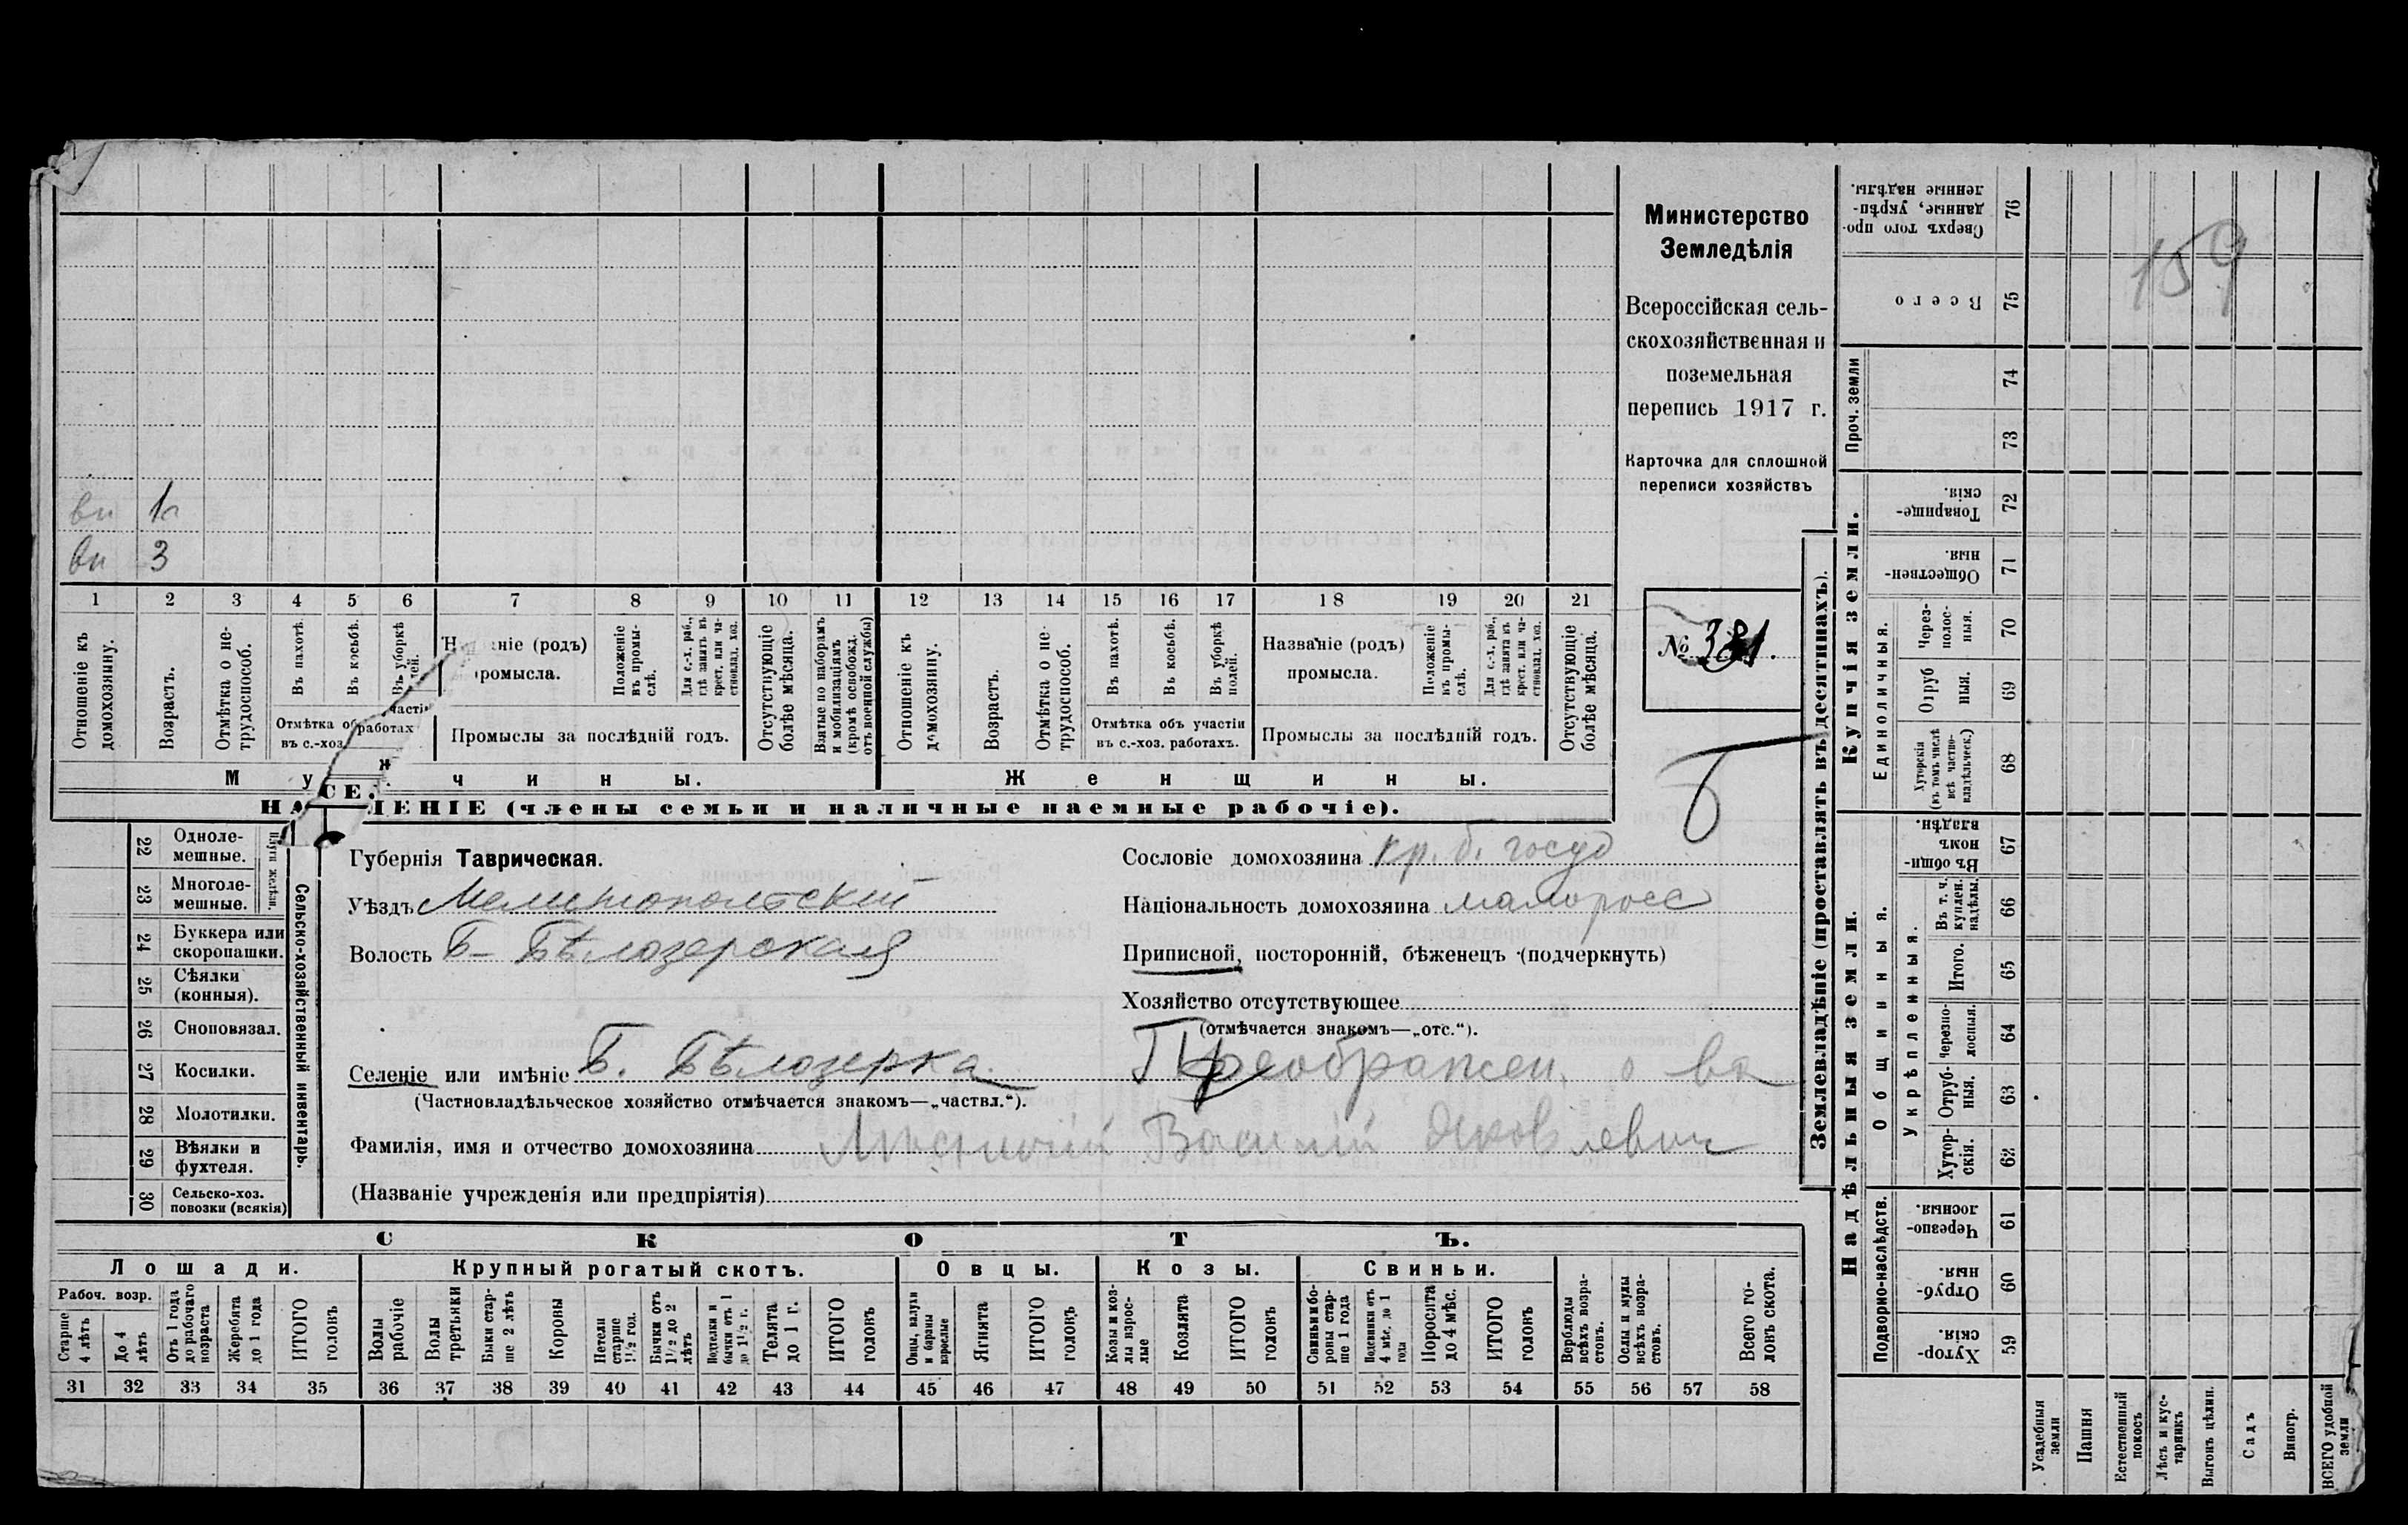 вн 1
вн 3
1 2 3 4 5 6 7 8 9 10 11 12 13 14 15 16 17 18 19 20 21
Отношеніе къ домохозяину.
Возрастъ.
Отмѣтка о не-трудоспособ.
Въ пахотѣ.
Въ косьбѣ.
Въ уборкѣ
Н ніе (родъ) ромысла.
Положеніе въ промы-слѣ.
Для с.-х. раб., гдѣ занятъ въ крест. или ча-стновлад. хоз.
Отсутствующіе болѣе мѣсяца.
Взятые по наборамъ и мобилизаціямъ (кромѣ освобожд. отъ военной службы)
Отношеніе къ домохозяину.
Возрастъ.
Отмѣтка о не-трудоспособ.
Въ пахотѣ.
Въ косьбѣ.
Въ уборкѣ полей.
Названіе (родъ) промысла.
Положеніе въ промы-слѣ.
Для с.-х. раб., гдѣ занята въ крест. или ча-стновлад. хоз.
Отсутствующіе болѣе мѣсяца.
Отмѣтка об части въ с.-хоз. работах
Промыслы за послѣдній годъ.
Отмѣтка объ участіи въ с.-хоз. работахъ.
Промыслы за послѣдній годъ.
М у ж ч и н ы.
Ж е н щ и н ы.
НАСЕЛЕНІЕ (члены семьи и наличные наемные рабочіе).
Министерство
Земледѣлія
Всероссійская сель-
скохозяйственная и
поземельная
перепись 1917 г.
Карточка для сплошной
переписи хозяйствъ
№ 381.
Б
22 Одноле-мешные.
23 Многоле-мешные.
Плуги желѣзн.
24 Буккера или скоропашки.
25 Сѣялки (конныя).
26 Сноповязал.
27 Косилки.
28 Молотилки.
29 Вѣялки и фухтеля.
30 Сельско-хоз. повозки (всякія)
Сельско-хозяйственный инвентарь.
Губернія Таврическая.
Уѣздъ Мелитопольскій
Волость Б- Бѣлозерская
Селеніе или имѣніе Б. Бѣлозерка.
(Частновладѣльческое хозяйство отмѣчается знакомъ—„частвл.“).
Сословіе домохозяина кр. б. госуд
Національность домохозяина малоросс
Приписной, посторонній, бѣженецъ (подчеркнуть)
Хозяйство отсутствующее
(отмѣчается знакомъ—„отс.“).
Преображен. о ва
Фамилія, имя и отчество домохозяина Василій Яковлевич
(Названіе учрежденія или предпріятія)
С К О Т Ъ.
Лошади. Крупный рогатый скотъ. Овцы. Козы. Свиньи.
Рабоч. возр.
Старше 4 лѣтъ
До 4 лѣтъ
Отъ 1 года до рабочаго возраста
Жеребята до 1 года
ИТОГО головъ
Волы рабочіе
Волы третьяки
Быки стар-ше 2 лѣтъ
Коровы
Нетели старше 1½ год.
Бычки отъ 1½ до 2 лѣтъ
Подтелки и бычки отъ 1 до 1½ г.
Телята до 1 г.
ИТОГО головъ
Овцы, валухи и бараны взрослые
Ягнята
ИТОГО головъ
Козы и коз-лы взрос-лые
Козлята
ИТОГО головъ
Свиньи и бо-ровы стар-ше 1 года
Подсвинки отъ 4 мѣс. до 1 года
Поросята до 4 мѣс.
ИТОГО головъ
Верблюды всѣхъ возра-стовъ.
Ослы и мулы всѣхъ возра-стовъ.
Всего го-ловъ скота.
31 32 33 34 35 36 37 38 39 40 41 42 43 44 45 46 47 48 49 50 51 52 53 54 55 56 57 58
Землевладѣніе (проставлять въ десятинахъ).
159
Сверхъ того про-данные, укрѣп-ленные надѣлы. 76
Всего 75
Проч. земли 74
73
Купчія земли.
Товарище-скія. 72
Обществен-ныя. 71
Единоличныя.
Через-полос-ныя. 70
Отруб ныя. 69
Хуторскія (въ томъ числѣ всѣ частно-владѣльческ.) 68
Надѣльныя земли.
Общинныя.
Въ общин-номъ владѣн. 67
Укрѣпленныя.
Въ т. ч. куплен. надѣлы. 66
Итого. 65
Черезпо-лосныя. 64
Отруб-ныя. 63
Хутор-скія. 62
Подворно-наслѣдств.
Черезпо-лосныя. 61
Отруб-ныя. 60
Хутор-скія. 59
Усадебныя земли
Пашня
Естественный покосъ
Лѣсъ и кус-тарникъ
Выгонъ цѣлин.
Садъ
Виногр.
ВСЕГО удобной земли